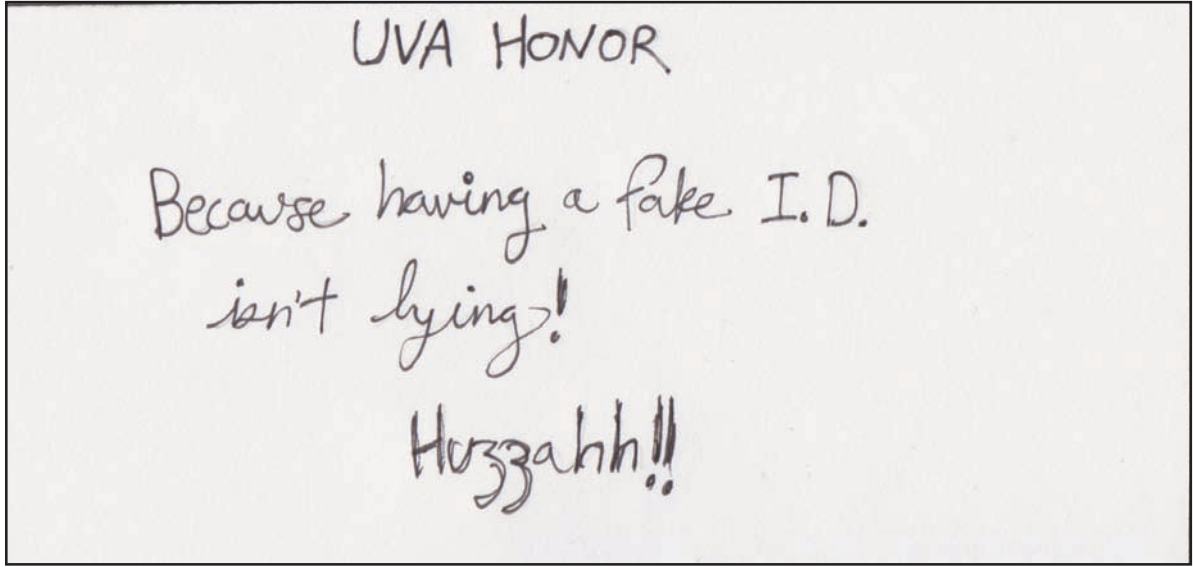 UVA HONOR
Because having a fake I.D.
isn't lying!
Huzzahh!!